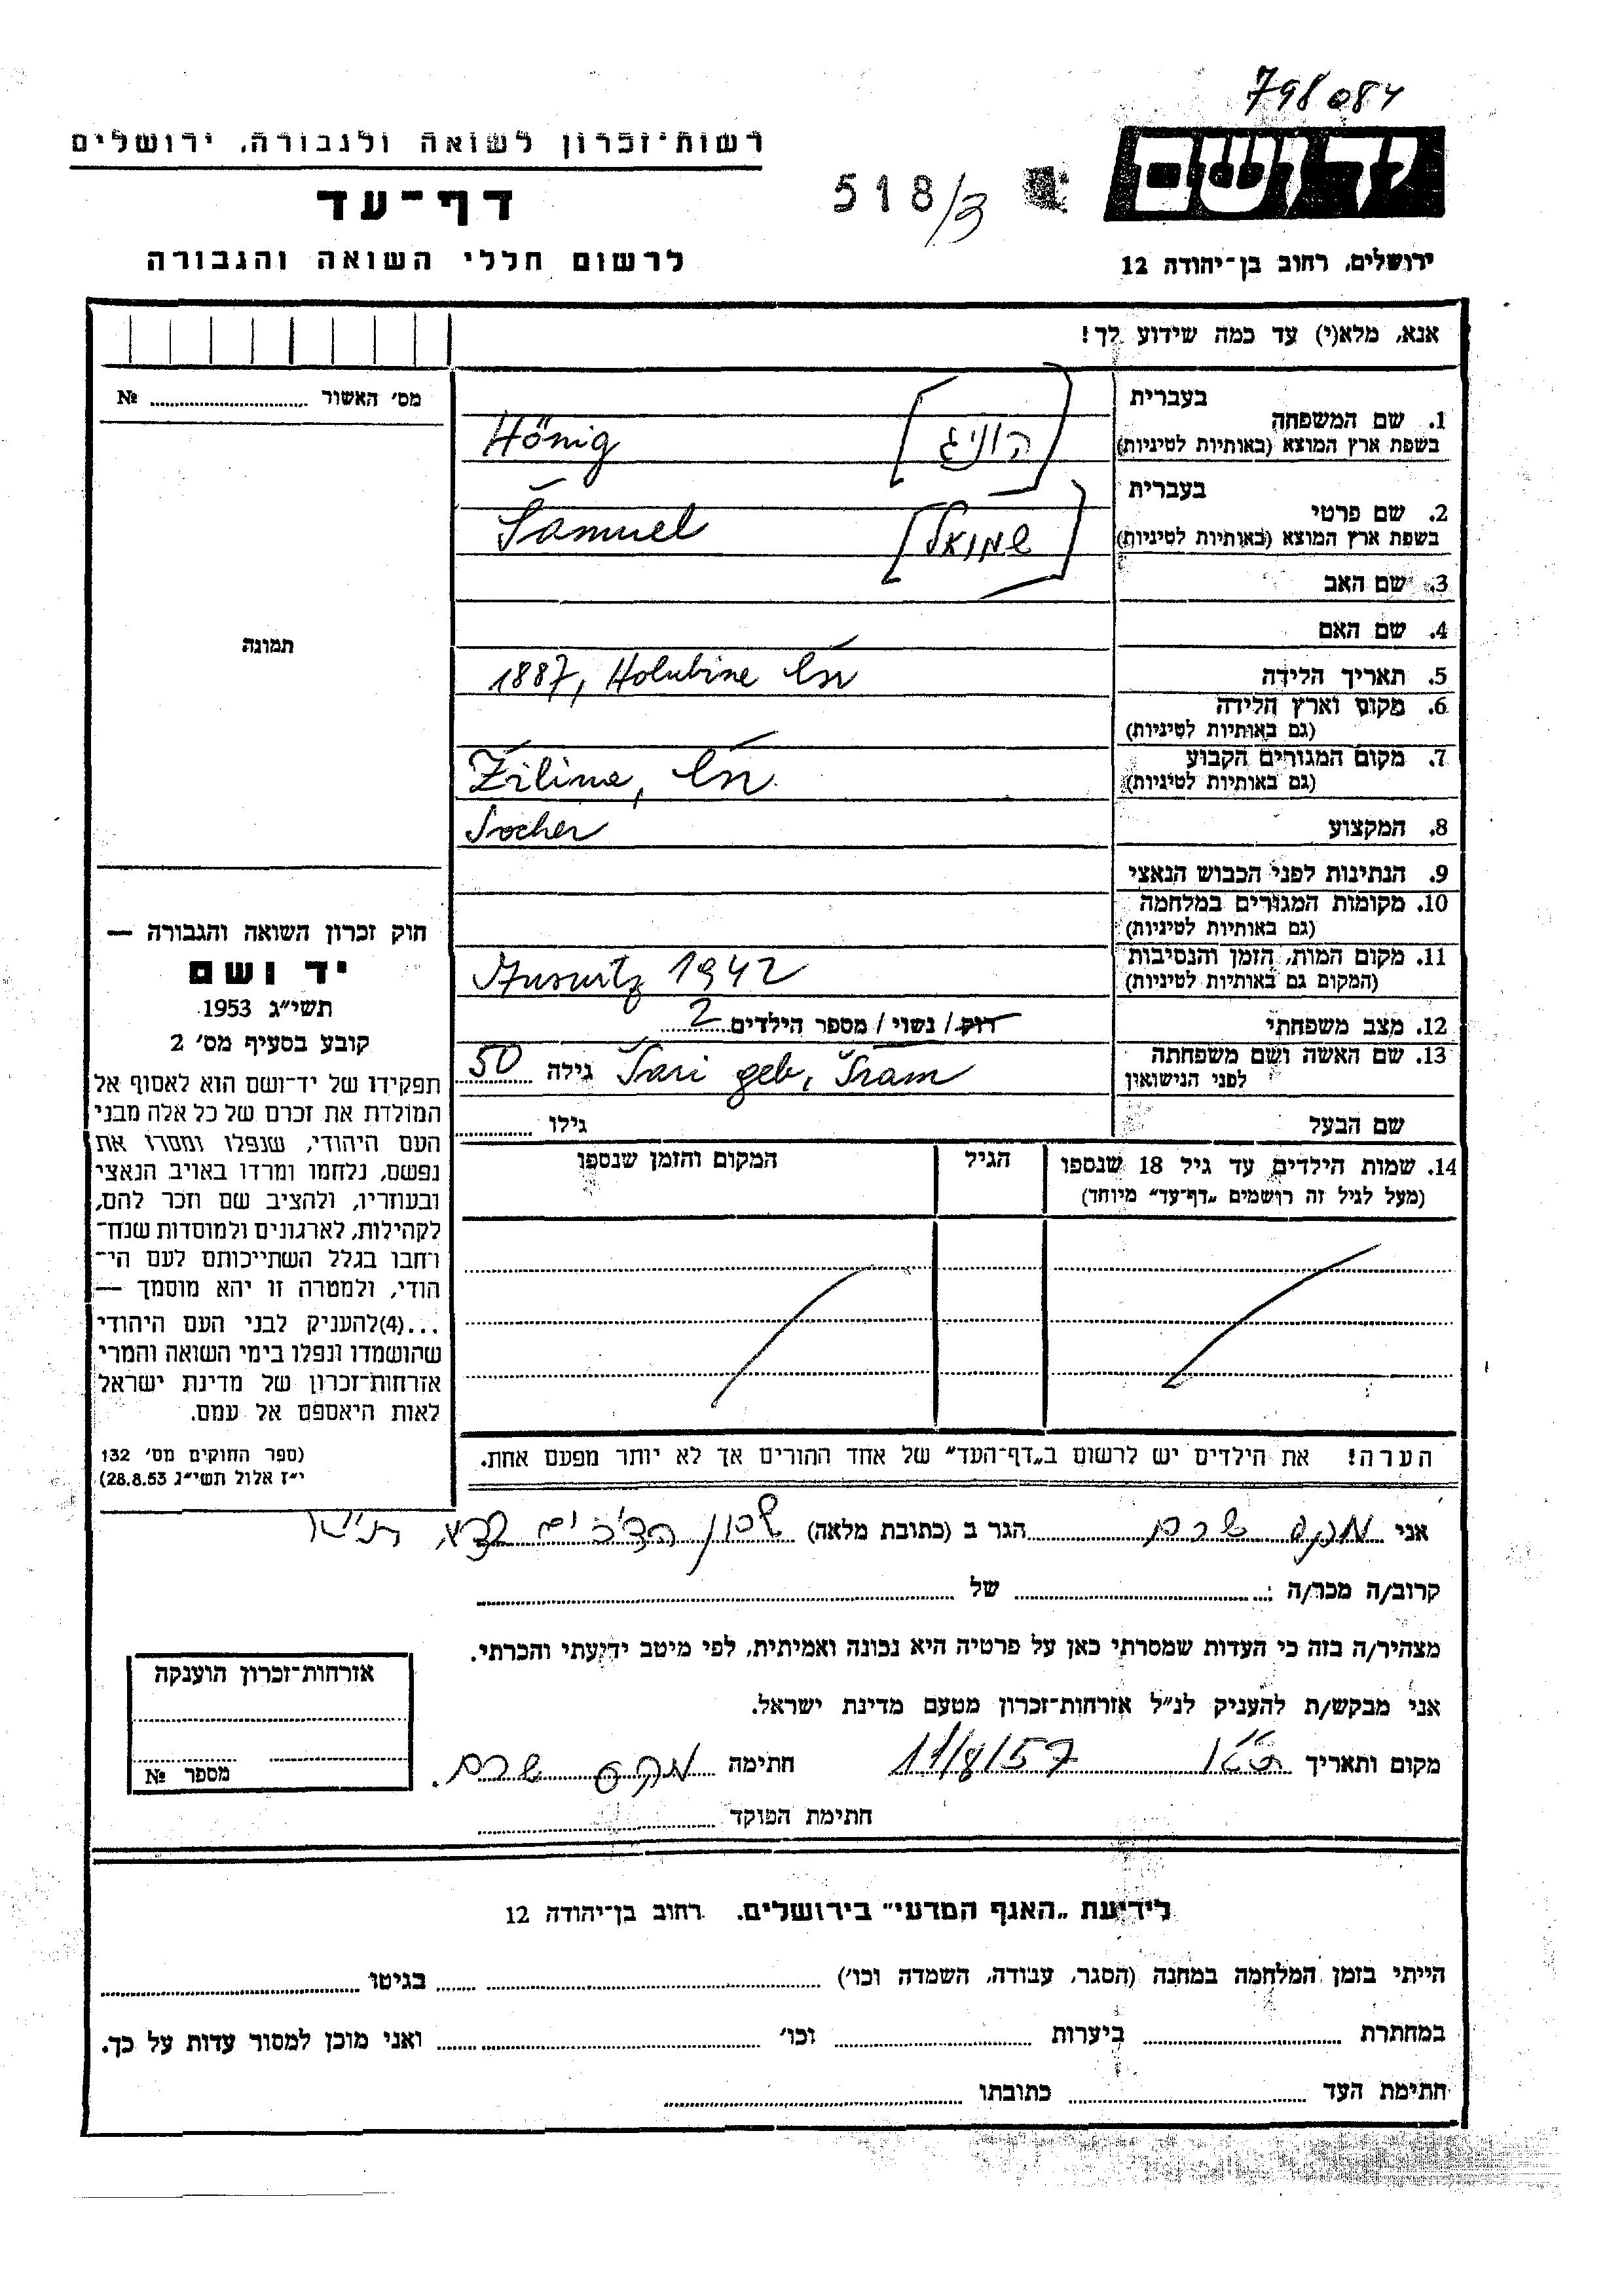 798084
רשות-זכרון לשואה ולגבורה, ירושלים
דף-עד
לרשום חללי השואה והגבורה
518/3
יד ושם
ירושלים, רחוב בן-יהודה 12
אנא, מלא(י) עד כמה שידוע לך!
מס' האשור ........ №
תמונה
חוק זכרון השואה והגבורה —
יד ושם
תשי״ג 1953
קובע בסעיף מס' 2
תפקידו של יד-ושם הוא לאסוף אל
המולדת את זכרם של כל אלה מבני
העם היהודי, שנפלו ומסרו את
נפשם, נלחמו ומרדו באויב הנאצי
ובעוזריו, ולהציב שם וזכר להם,
לקהילות, לארגונים ולמוסדות שנח-
רחבו בגלל השתייכותם לעם הי-
הודי, ולמטרה זו יהא מוסמך —
...(4)להעניק לבני העם היהודי
שהושמדו ונפלו בימי השואה והמרי
אזרחות-זכרון של מדינת ישראל
לאות היאספם אל עמם.
(ספר החוקים מס' 132
י״ז אלול תשי״ג 28.8.53)
בעברית
1. שם המשפחה
בשפת ארץ המוצא (באותיות לטיניות)
[הוניג] Hönig
בעברית
2. שם פרטי
בשפת ארץ המוצא (באותיות לטיניות)
[שמואל] Šamuel
3. שם האב
4. שם האם
5. תאריך הלידה 1887, Holubine čsr
6. מקום וארץ הלידה
(גם באותיות לטיניות)
7. מקום המגורים הקבוע Žilina, čsr.
(גם באותיות לטיניות)
8. המקצוע Socher
9. הנתינות לפני הכבוש הנאצי
10. מקומות המגורים במלחמה
(גם באותיות לטיניות)
11. מקום המות, הזמן והנסיבות 1942
(המקום גם באותיות לטיניות)
12. מצב משפחתי רוק / נשוי / מספר הילדים 2
13. שם האשה ושם משפחתה Šari geb. Šram גילה 50
לפני הנישואין
שם הבעל גילו
14. שמות הילדים עד גיל 18 שנספו הגיל המקום והזמן שנספו
(מעל לגיל זה רושמים „דף-עד״ מיוחד)
הערה! את הילדים יש לרשום ב„דף-העד״ של אחד ההורים אך לא יותר מפעם אחת.
אני מקס שרם הגר ב (כתובת מלאה) שכון
קרוב/ה מכר/ה : של
מצהיר/ה בזה כי העדות שמסרתי כאן על פרטיה היא נכונה ואמיתית, לפי מיטב ידיעתי והכרתי.
אני מבקש/ת להעניק לנ״ל אזרחות-זכרון מטעם מדינת ישראל.
מקום ותאריך ת״א 11/8/57 חתימה מקס שרם.
חתימת הפוקד
אזרחות-זכרון הוענקה
מספר №
לידיעת „האגף המדעי״ בירושלים. רחוב בן-יהודה 12
הייתי בזמן המלחמה במחנה (הסגר, עבודה, השמדה וכו') בגיטו
במחתרת ביערות וכו' ואני מוכן למסור עדות על כך.
חתימת העד כתובתו